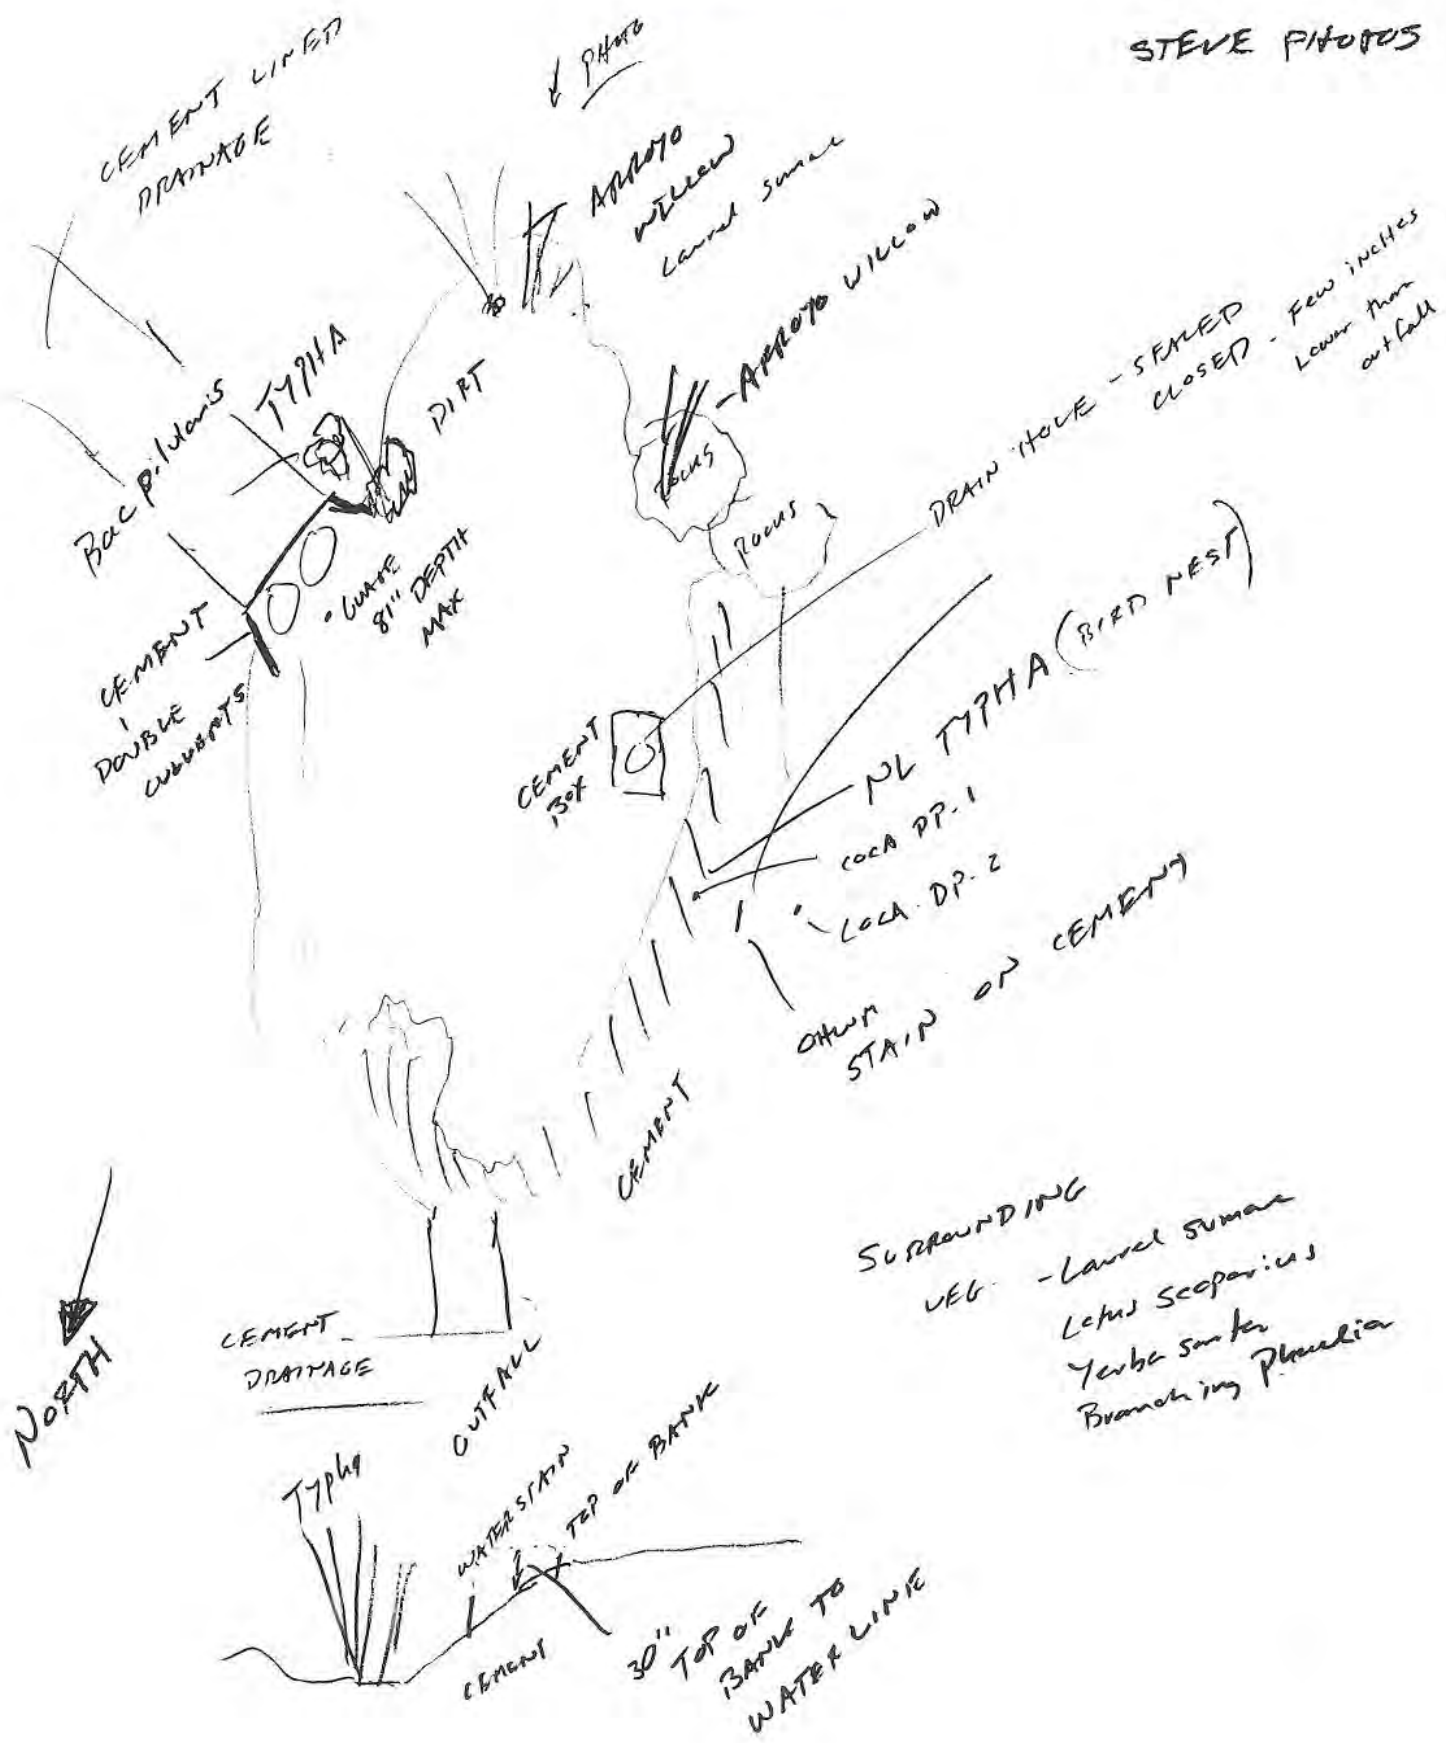 STEVE PHOTOS
CEMENT LINED
DRAINAGE
PHOTO
ARROYO
WILLOW
Laurel sumac
ARROYO WILLOW
TYPHA
Bac pilularis
DIRT
ROCKS
ROCKS
DRAIN HOLE - SEALED
CLOSED - Few inches
Lower than
outfall
GUAGE
81" DEPTH
MAX
CEMENT
DOUBLE
CULVERTS
CEMENT
BOX
NL TYPHA (BIRD NEST)
LOCA DP. 1
LOCA. DP. 2
OHWM
STAIN ON CEMENT
CEMENT
SURROUNDING
VEG. - Laurel sumac
Lotus scoparius
Yerba santa
Branching Phacelia
NORTH
CEMENT
DRAINAGE
OUTFALL
Typha
WATER STAIN
TOP OF BANK
CEMENT
30"
TOP OF
BANK TO
WATER LINE